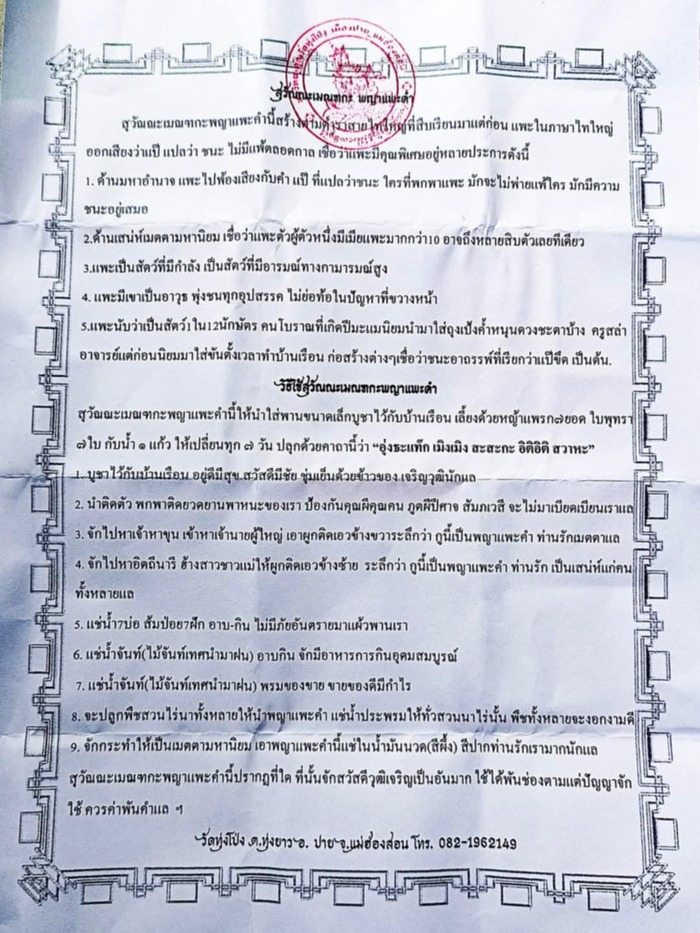 สุวัณณะเมณฑกะ พญาแพะคำ
สุวัณณะเมณฑกะพญาแพะคำนี้สร้างตามตำราสายไทใหญ่ที่สืบเรียนมาแต่ก่อน แพะในภาษาไทใหญ่
ออกเสียงว่าแป๊ แปลว่า ชนะ ไม่มีแพ้ตลอดกาล เชื่อว่าแพะมีคุณพิเศษอยู่หลายประการดังนี้
1. ด้านมหาอำนาจ แพะไปพ้องเสียงกับคำ แป๊ ที่แปลว่าชนะ ใครที่พกพาแพะ มักจะไม่พ่ายแพ้ใคร มักมีความ
ชนะอยู่เสมอ
2.ด้านเสน่ห์เมตตามหานิยม เชื่อว่าแพะตัวผู้ตัวหนึ่งมีเมียแพะมากกว่า10 อาจถึงหลายสิบตัวเลยทีเดียว
3.แพะเป็นสัตว์ที่มีกำลัง เป็นสัตว์ที่มีอารมณ์ทางกามารมณ์สูง
4. แพะมีเขาเป็นอาวุธ พุ่งชนทุกอุปสรรค ไม่ย่อท้อในปัญหาที่ขวางหน้า
5.แพะนับว่าเป็นสัตว์1ใน12นักษัตร คนโบราณที่เกิดปีมะแมนิยมนำมาใส่ถุงเป้งค้ำหนุนดวงชะตาบ้าง ครูสล่า
อาจารย์แต่ก่อนนิยมมาใส่ขันตั้งเวลาทำบ้านเรือน ก่อสร้างต่างๆเชื่อว่าชนะอาถรรพ์ที่เรียกว่าแป๊ขึด เป็นต้น.
วิธีใช้สุวัณณะเมณฑกะพญาแพะคำ
สุวัณณะเมณฑกะพญาแพะคำนี้ให้นำใส่พานขนาดเล็กบูชาไว้กับบ้านเรือน เลี้ยงด้วยหญ้าแพรก๗ยอด ใบพุทรา
๗ใบ กับน้ำ ๑ แก้ว ให้เปลี่ยนทุก ๗ วัน ปลุกด้วยคาถานี้ว่า “อุ่งธะแท๊ก เมิงเมิง สะสะกะ อิติอิติ สวาหะ”
1. บูชาไว้กับบ้านเรือน อยู่ดีมีสุข สวัสดีมีชัย ชุ่มเย็นด้วยข้าวของ เจริญวุฒินักแล
2. นำติดตัว พกพาติดยวดยานพาหนะของเรา ป้องกันคุณผีคุณคน ภูตผีปีศาจ สัมภเวสี จะไม่มาเบียดเบียนเราแล
3. จักไปหาเจ้าหาขุน เข้าหาเจ้านายผู้ใหญ่ เอาผูกติดเอวข้างขวาระลึกว่า กูนี้เป็นพญาแพะคำ ท่านรักเมตตาแล
4. จักไปหาอิตถีนารี ฮ้างสาวชาวแม่ให้ผูกติดเอวข้างซ้าย ระลึกว่า กูนี้เป็นพญาแพะคำ ท่านรัก เป็นเสน่ห์แก่คน
ทั้งหลายแล
5. แช่น้ำ7บ่อ ส้มป่อย7ฝัก อาบ-กิน ไม่มีภัยอันตรายมาแผ้วพานเรา
6. แช่น้ำจันท์(ไม้จันท์เทศนำมาฝน) อาบกิน จักมีอาหารการกินอุดมสมบูรณ์
7. แช่น้ำจันท์(ไม้จันท์เทศนำมาฝน) พรมของขาย ขายของดีมีกำไร
8. จะปลูกพืชสวนไร่นาทั้งหลายให้นำพญาแพะคำ แช่น้ำประพรมให้ทั่วสวนนาไร่นั้น พืชทั้งหลายจะงอกงามดี
9. จักกระทำให้เป็นเมตตามหานิยม เอาพญาแพะคำนี้แช่ในน้ำมันนวด(สีผึ้ง) สีปากท่านรักเรามากนักแล
สุวัณณะเมณฑกะพญาแพะคำนี้ปรากฏที่ใด ที่นั้นจักสวัสดีวุฒิเจริญเป็นอันมาก ใช้ได้พันช่องตามแต่ปัญญาจัก
ใช้ ควรค่าพันคำแล ฯ
วัดทุ่งโป่ง ต.ทุ่งยาว อ. ปาย จ.แม่ฮ่องสอน โทร. 082-1962149